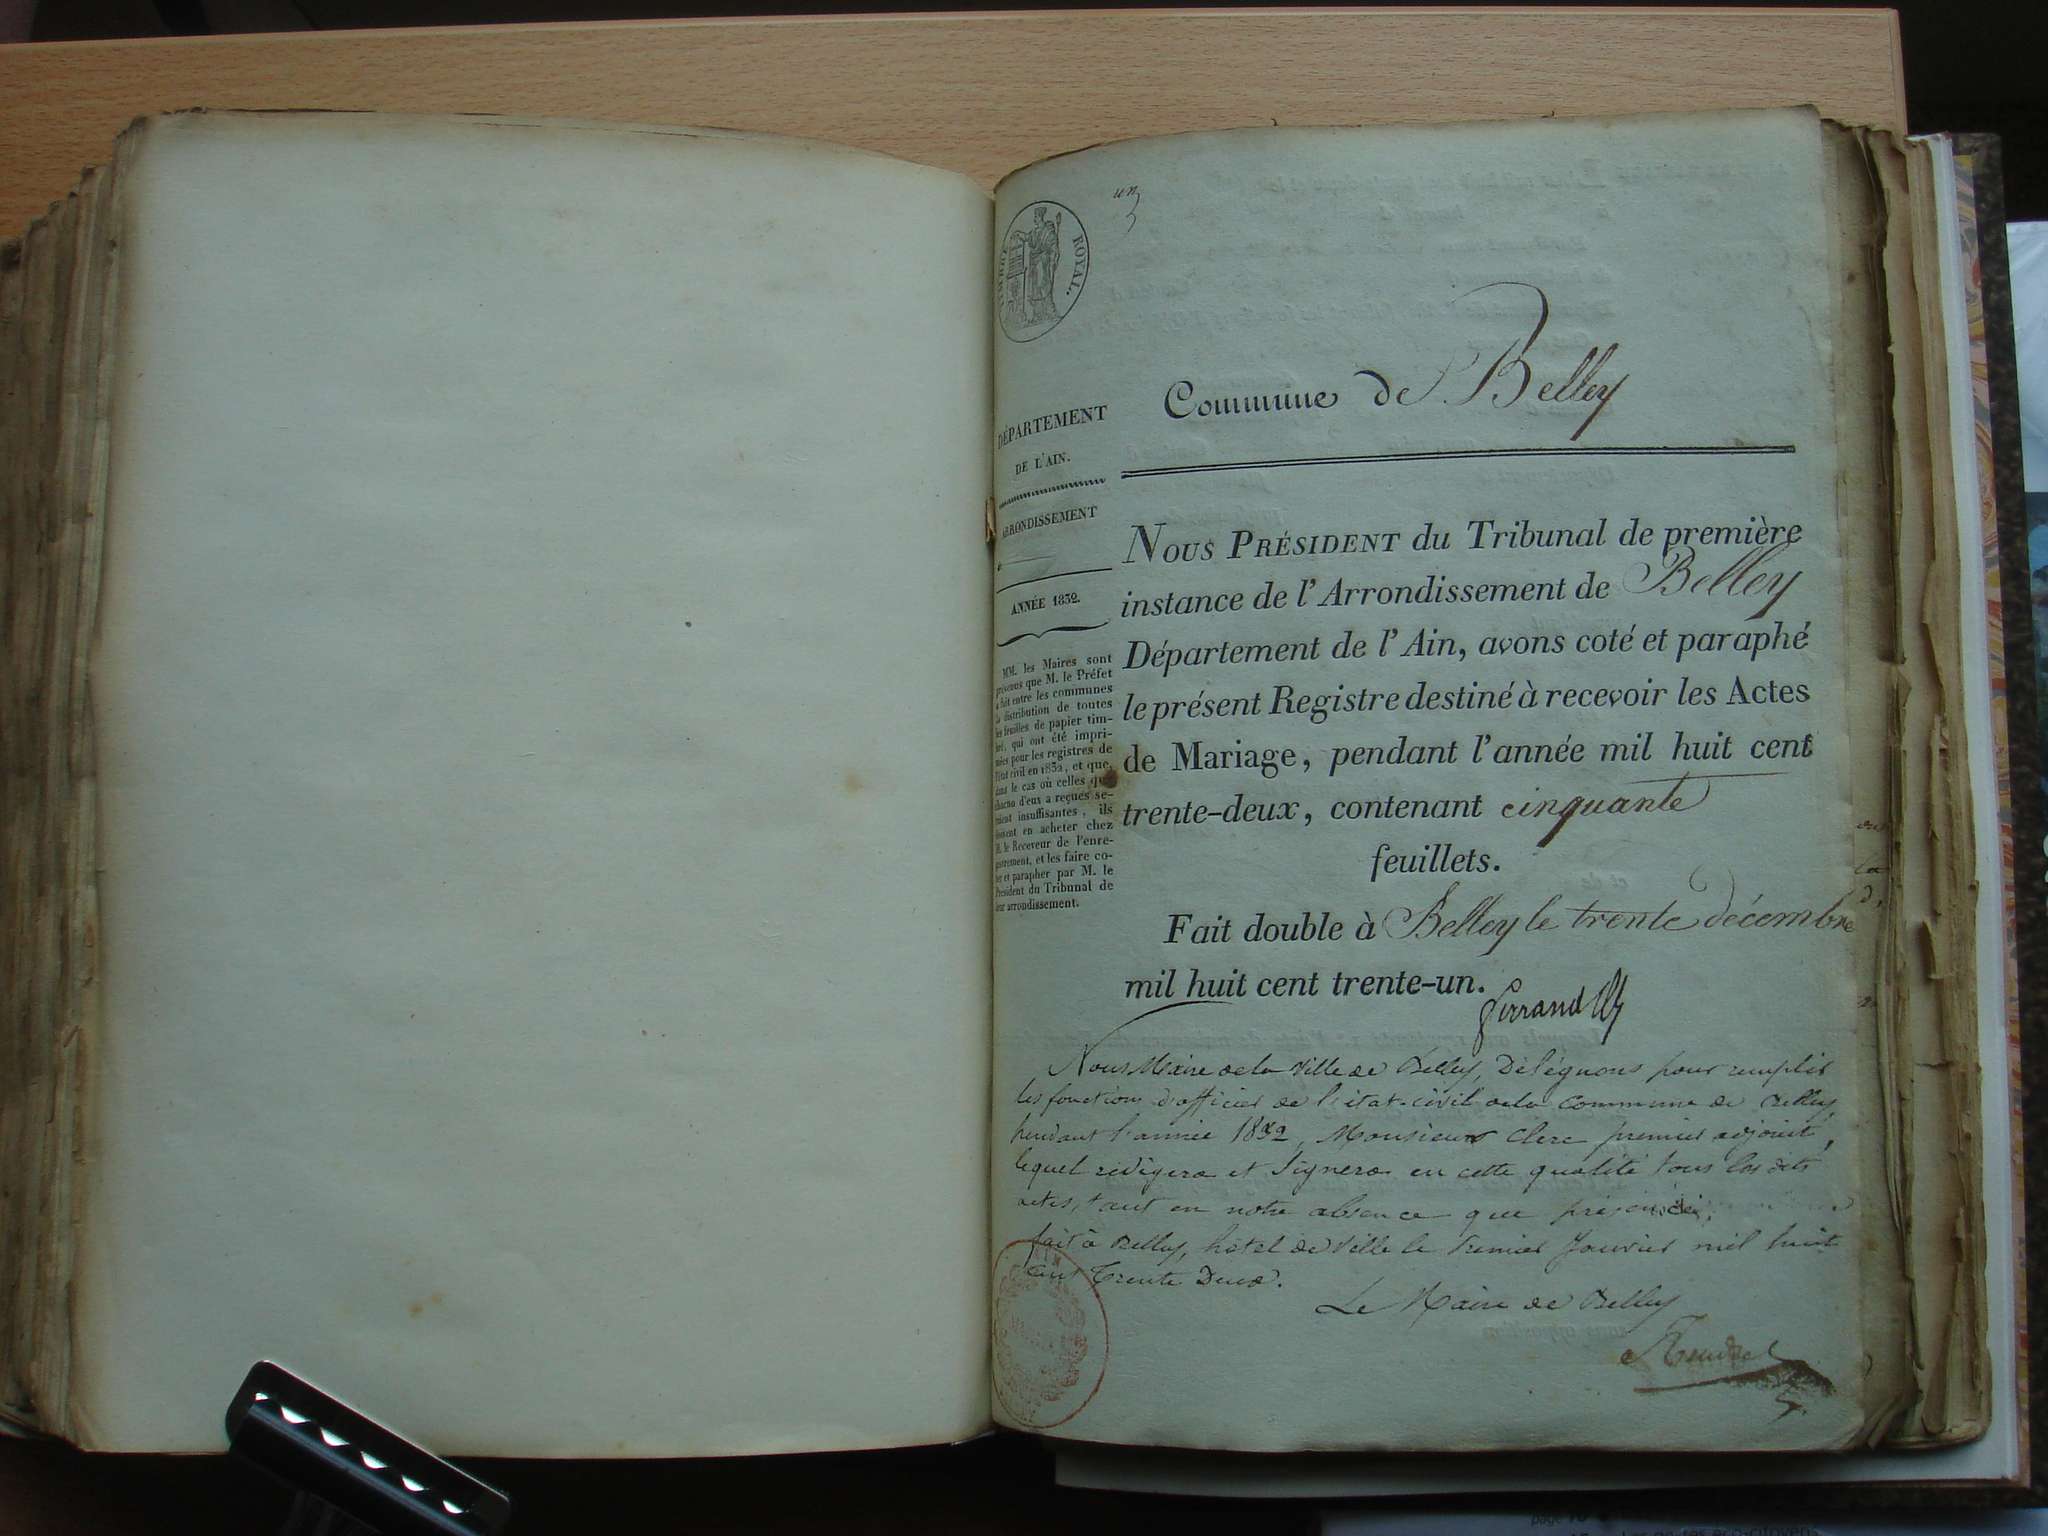 un
TIMBRE ROYAL.
Commune de Belley
DÉPARTEMENT
DE L'AIN.
ARRONDISSEMENT
ANNÉE 1832.
MM. les Maires sont
prévenus que M. le Préfet
a fait entre les communes
la distribution de toutes
les feuilles de papier tim-
bré, qui ont été impri-
mées pour les registres de
l'état civil en 1832, et que,
dans le cas où celles que
chacun d'eux a reçues se-
raient insuffisantes, ils
doivent en acheter chez
M. le Receveur de l'enre-
gistrement, et les faire co-
ter et parapher par M. le
Président du Tribunal de
leur arrondissement.
Nous Président du Tribunal de première
instance de l'Arrondissement de Belley
Département de l'Ain, avons coté et paraphé
le présent Registre destiné à recevoir les Actes
de Mariage, pendant l'année mil huit cent
trente-deux, contenant cinquante
feuillets.
Fait double à Belley le trente décembre
mil huit cent trente-un.
Nous Maire de la Ville de Belley, Déléguons pour remplir
les fonctions d'officier de l'état-civil de la Commune de Belley,
pendant l'année 1832, Monsieur Clerc premier adjoint,
lequel rédigera et signera en cette qualité tous les dits
actes, tant en notre absence que présence.
fait à Belley, hôtel de Ville le Premier Janvier mil huit
cent Trente Deux.
Le Maire de Belley